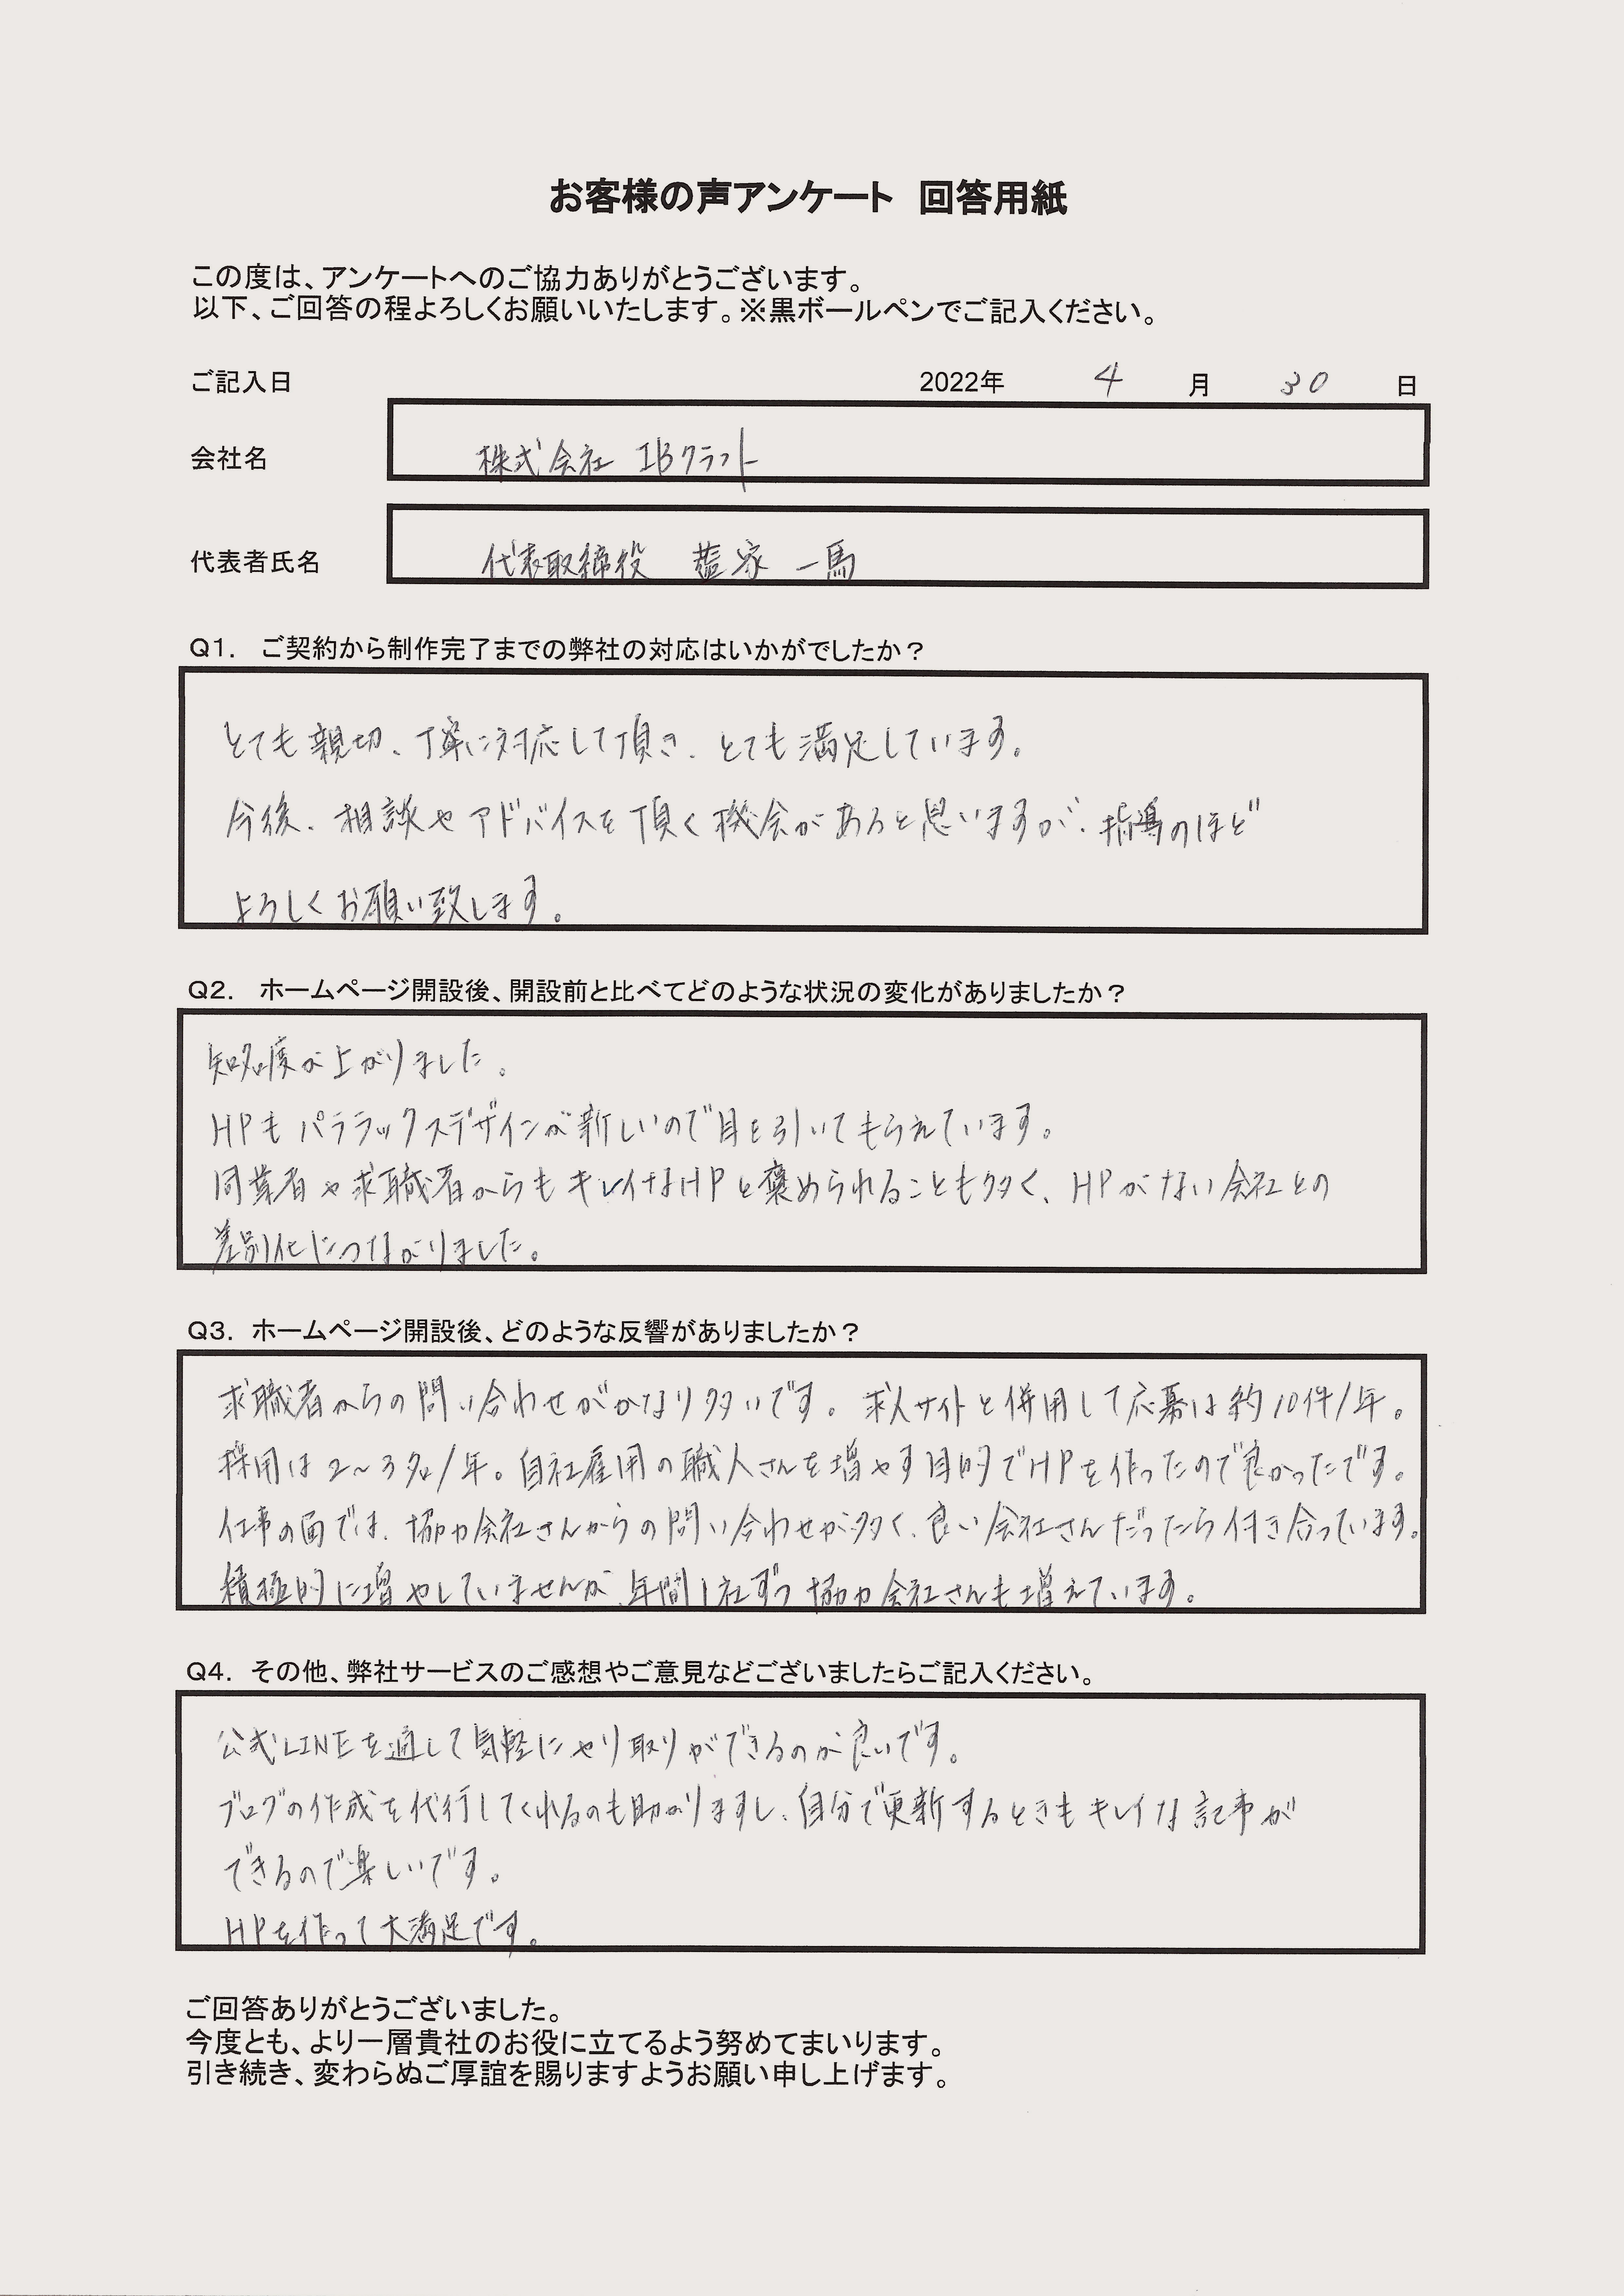 お客様の声アンケート　回答用紙
この度は、アンケートへのご協力ありがとうございます。
以下、ご回答の程よろしくお願いいたします。※黒ボールペンでご記入ください。
ご記入日 2022年 4 月 30 日
会社名 株式会社 IBクラフト
代表者氏名 代表取締役 家 一馬
Q1.　ご契約から制作完了までの弊社の対応はいかがでしたか？
とても親切、丁寧に対応して頂き、とても満足しています。
今後、相談やアドバイスを頂く機会があると思いますが、指導のほど
よろしくお願い致します。
Q2.　ホームページ開設後、開設前と比べてどのような状況の変化がありましたか？
知名度が上がりました。
HPもパララックスデザインが新しいので目を引いてもらえています。
同業者や求職者からもキレイなHPと褒められることも多く、HPがない会社との
差別化につながりました。
Q3.　ホームページ開設後、どのような反響がありましたか？
求職者からの問い合わせがかなり多いです。求人サイトと併用して応募は約10件/年。
採用は2～3名/年。自社雇用の職人さんを増やす目的でHPを作ったので良かったです。
仕事の面では、協力会社さんからの問い合わせが多く、良い会社さんだったら付き合っています。
積極的に増やしていませんが、年間1社ずつ協力会社さんも増えています。
Q4.　その他、弊社サービスのご感想やご意見などございましたらご記入ください。
公式LINEを通して気軽にやり取りができるのが良いです。
ブログの作成を代行してくれるのも助かりますし、自分で更新するときもキレイな記事が
できるので楽しいです。
HPを作って大満足です。
ご回答ありがとうございました。
今度とも、より一層貴社のお役に立てるよう努めてまいります。
引き続き、変わらぬご厚誼を賜りますようお願い申し上げます。